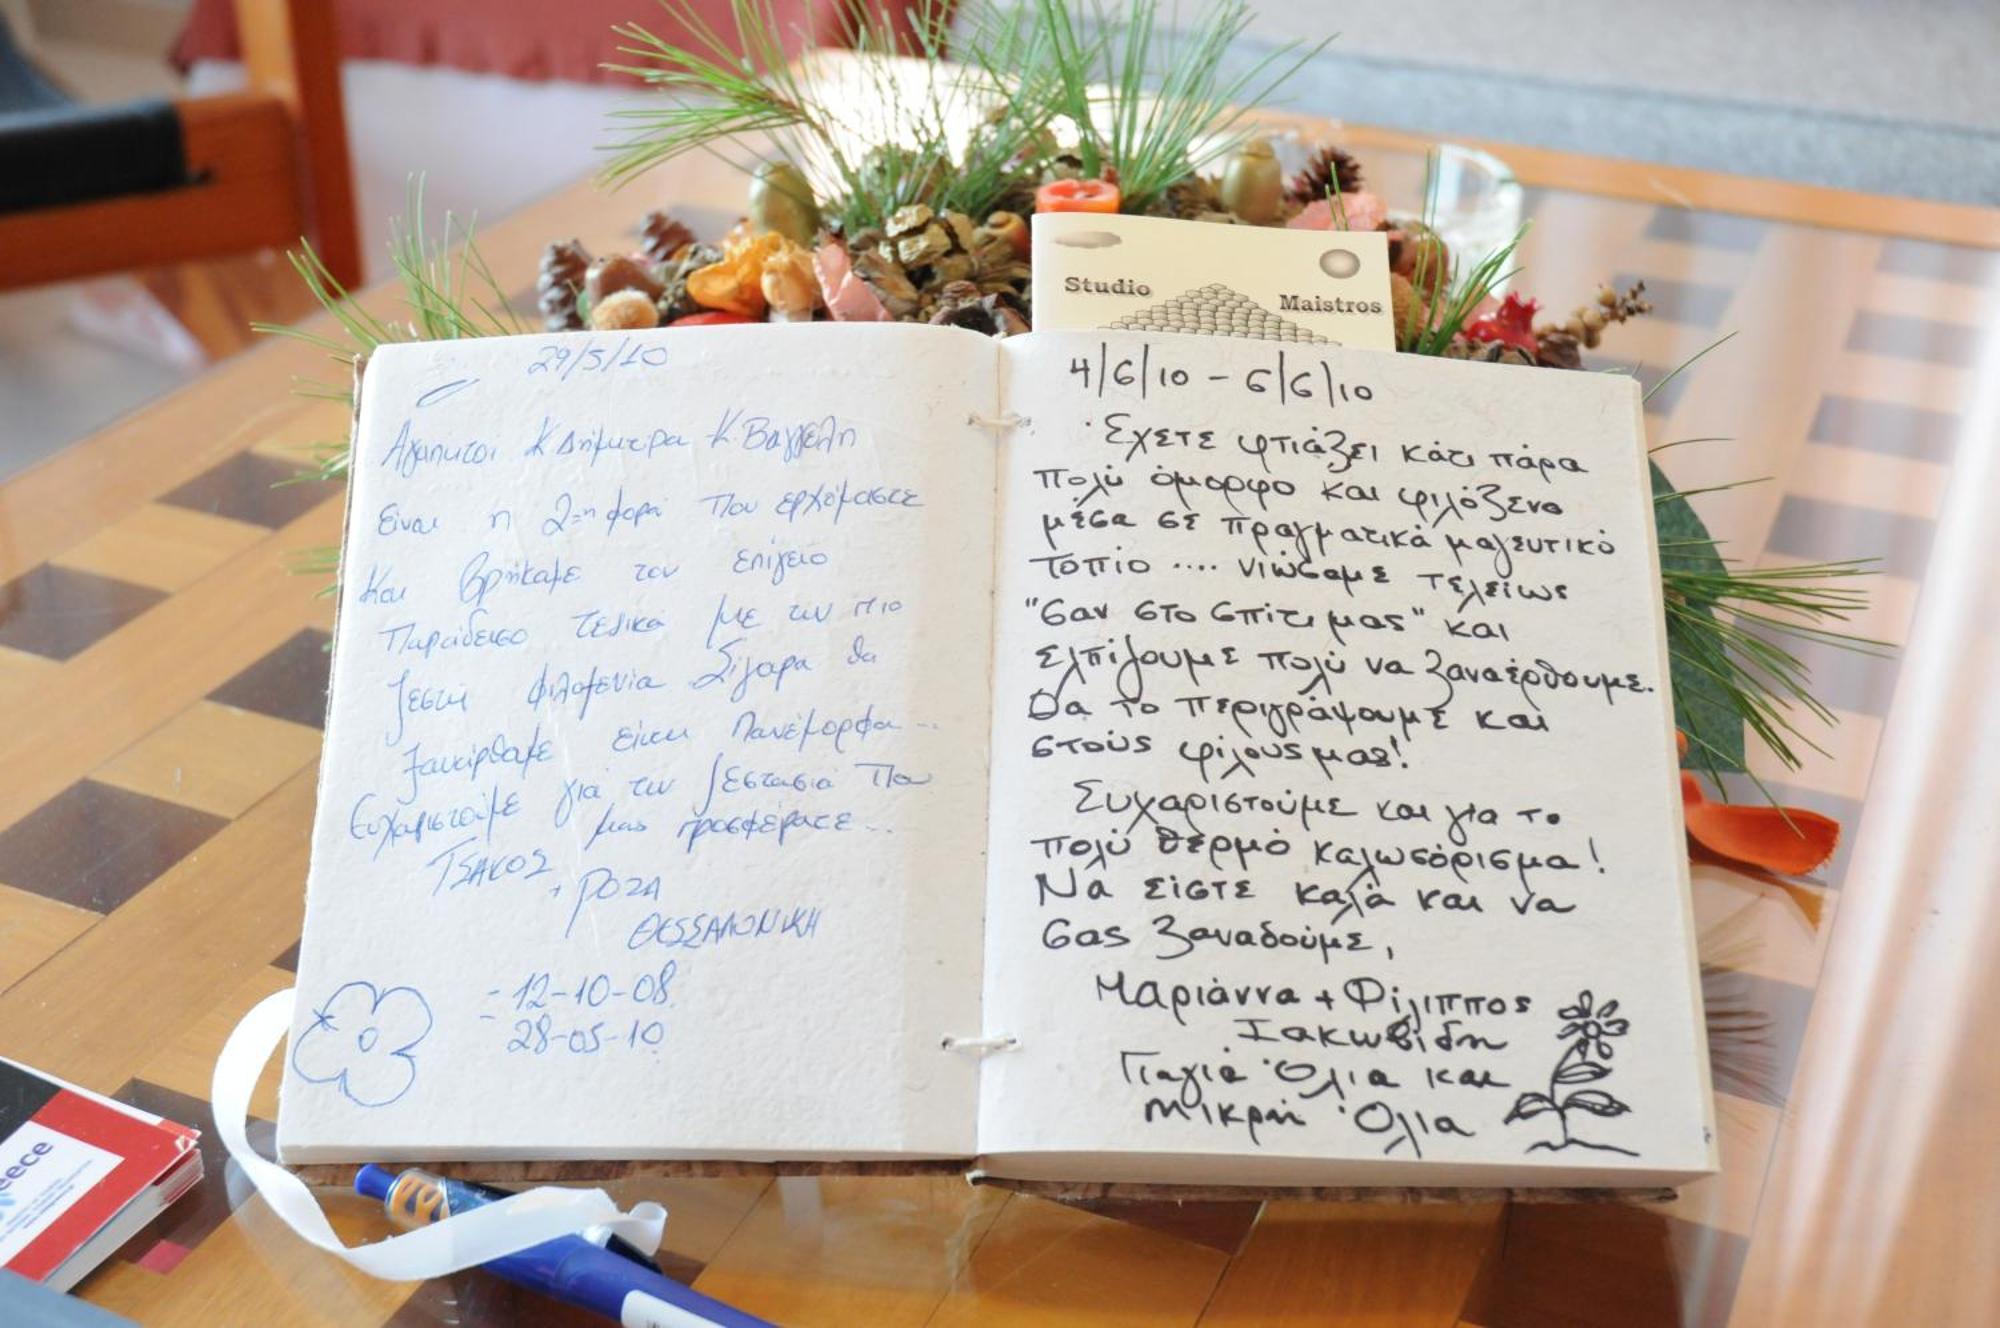 Studio Maistros
29/5/10
Αγαπητοι Κ Δήμητρα Κ. Βαγγέλη
Είναι η 2=η φορά που ερχόμαστε
και βρήκαμε τον επίγειο
Παράδεισο τελικά με την πιο
ζεστή φιλοξενία Σίγουρα θα
ξαναέρθομε είναι Πανέμορφα...
Ευχαριστούμε για την ζεστασιά που
μας προσφέρατε...
ΤΣΑΚΟΣ
+ ΡΟΖΑ
ΘΕΣΣΑΛΟΝΙΚΗ
- 12-10-08
- 28-05-10
4/6/10 - 6/6/10
Έχετε φτιάξει κάτι πάρα
πολύ όμορφο και φιλόξενο
μέσα σε πραγματικά μαγευτικό
τοπίο .... νιώσαμε τελείως
"σαν στο σπίτι μας" και
ελπίζουμε πολύ να ξαναέρθουμε.
Θα το περιγράψουμε και
στους φίλους μας!
Συχαριστούμε και για το
πολύ θερμό καλωσόρισμα!
Να είστε καλά και να
σας ξαναδούμε,
Μαριάννα + Φίλιππος
Ιακωβίδη
Γιαγιά Όλια και
μικρή Όλια
eece